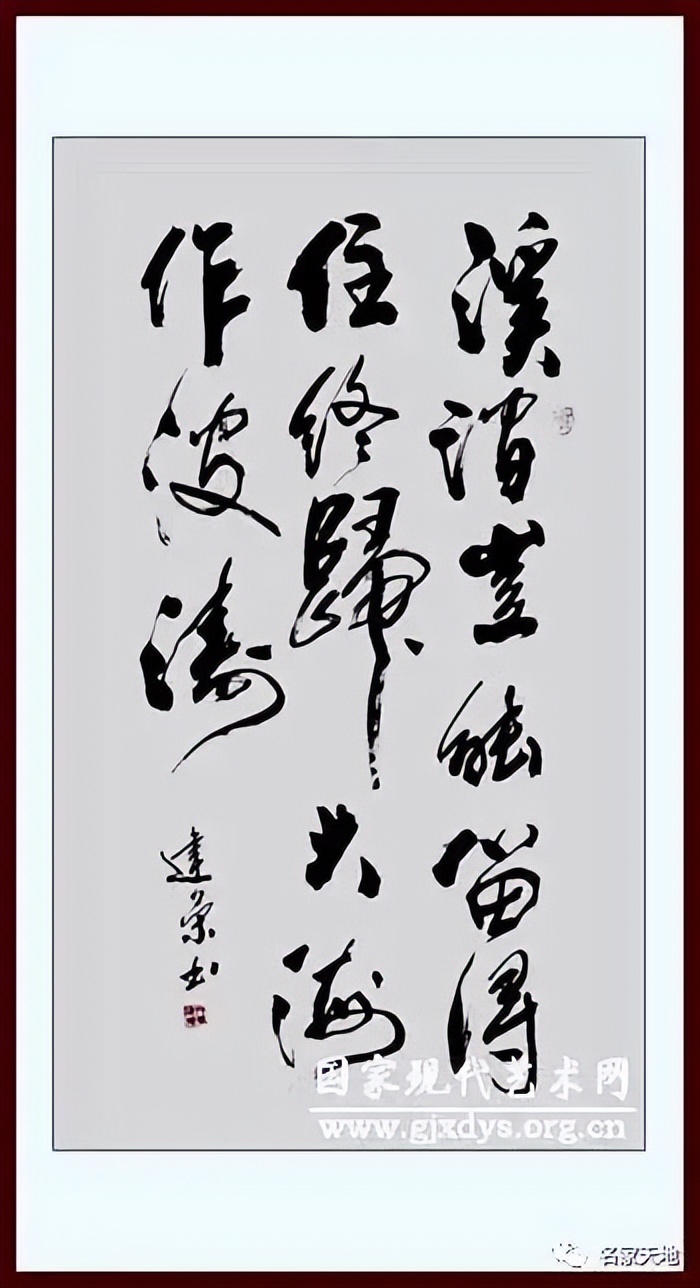 溪澗豈能留得
住終歸大海
作波濤
建榮书
国家现代艺术网
www.gjxdys.org.cn
名家天地